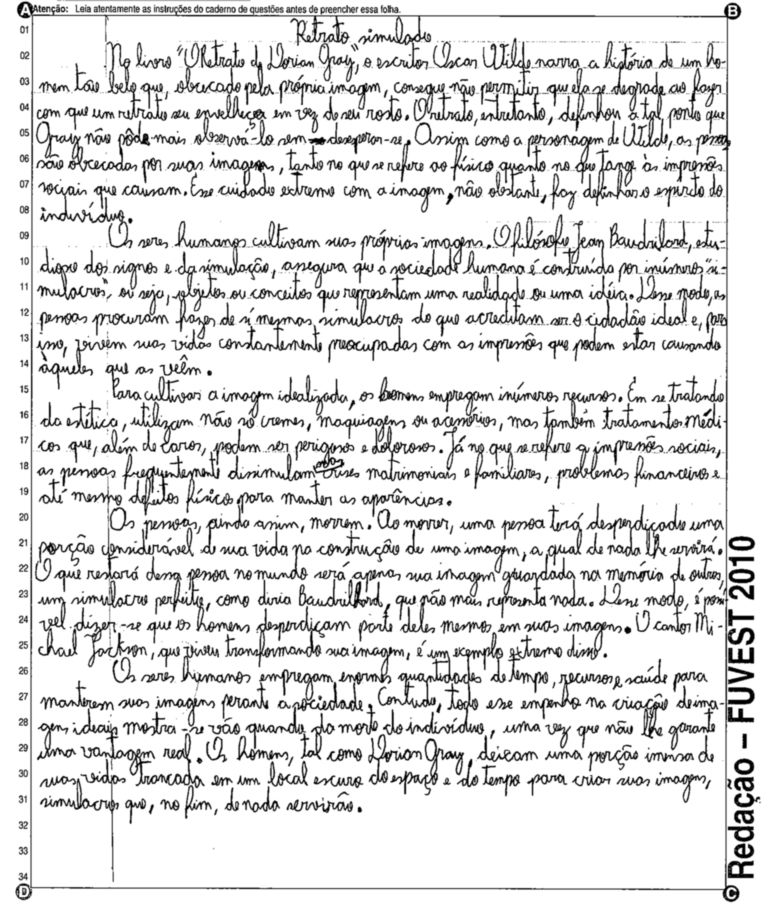 Atenção: Leia atentamente as instruções do caderno de questões antes de preencher essa folha.
A
B
01 Retrato simulado
02 No livro "O Retrato de Dorian Gray", o escritor Oscar Wilde narra a história de um ho-
03 mem tão belo que, obcecado pela própria imagem, consegue não permitir que ela se degrade ao fazer
04 com que um retrato seu envelheça em vez de seu rosto. O retrato, entretanto, definhou a tal ponto que
05 Gray não pôde mais observá-lo sem desesperar-se. Assim como a personagem de Wilde, as pessoas
06 são obcecadas por suas imagens, tanto no que se refere ao físico quanto no que tange às impressões
07 sociais que causam. Esse cuidado extremo com a imagem, não obstante, faz definhar o espírito do
08 indivíduo.
09 Os seres humanos cultivam suas próprias imagens. O filósofo Jean Baudrilard, estu-
10 dioso dos signos e da simulação, assegura que a sociedade humana é construída por inúmeros "si-
11 mulacros", ou seja, objetos ou conceitos que representam uma realidade ou uma idéia. Desse modo, as
12 pessoas procuram fazer de si mesmas simulacros do que acreditam ser o cidadão ideal e, para
13 isso, vivem suas vidas constantemente preocupadas com as impressões que podem estar causando
14 àqueles que as vêem.
15 Para cultivar a imagem idealizada, os homens empregam inúmeros recursos. Em se tratando
16 da estética, utilizam não só cremes, maquiagens ou acessórios, mas também tratamentos médi-
17 cos que, além de caros, podem ser perigosos e dolorosos. Já no que se refere a impressões sociais,
18 as pessoas frequentemente dissimulam crises matrimoniais e familiares, problemas financeiros e
19 até mesmo defeitos físicos para manter as aparências.
20 As pessoas, ainda assim, morrem. Ao morrer, uma pessoa terá desperdiçado uma
21 porção considerável de sua vida na construção de uma imagem, a qual de nada lhe servirá.
22 O que restará dessa pessoa no mundo será apenas sua imagem guardada na memória de outros,
23 um simulacro perfeito, como diria Baudrillard, que não mais representa nada. Desse modo, é possí
24 vel dizer-se que os homens desperdiçam parte deles mesmos em suas imagens. O cantor Mi-
25 chael Jackson, que viveu transformando sua imagem, é um exemplo extremo disso.
26 Os seres humanos empregam enormes quantidades de tempo, recursos e saúde para
27 manterem suas imagens perante a sociedade. Contudo, todo esse empenho na criação de ima-
28 gens ideais mostra-se vão quando da morte do indivíduo, uma vez que não lhe garante
29 uma vantagem real. Os homens, tal como Dorian Gray, deixam uma porção imensa de
30 suas vidas trancada em um local escuro do espaço e do tempo para criar suas imagens,
31 simulacros que, no fim, de nada servirão.
32
33
34
D
C
Redação – FUVEST 2010